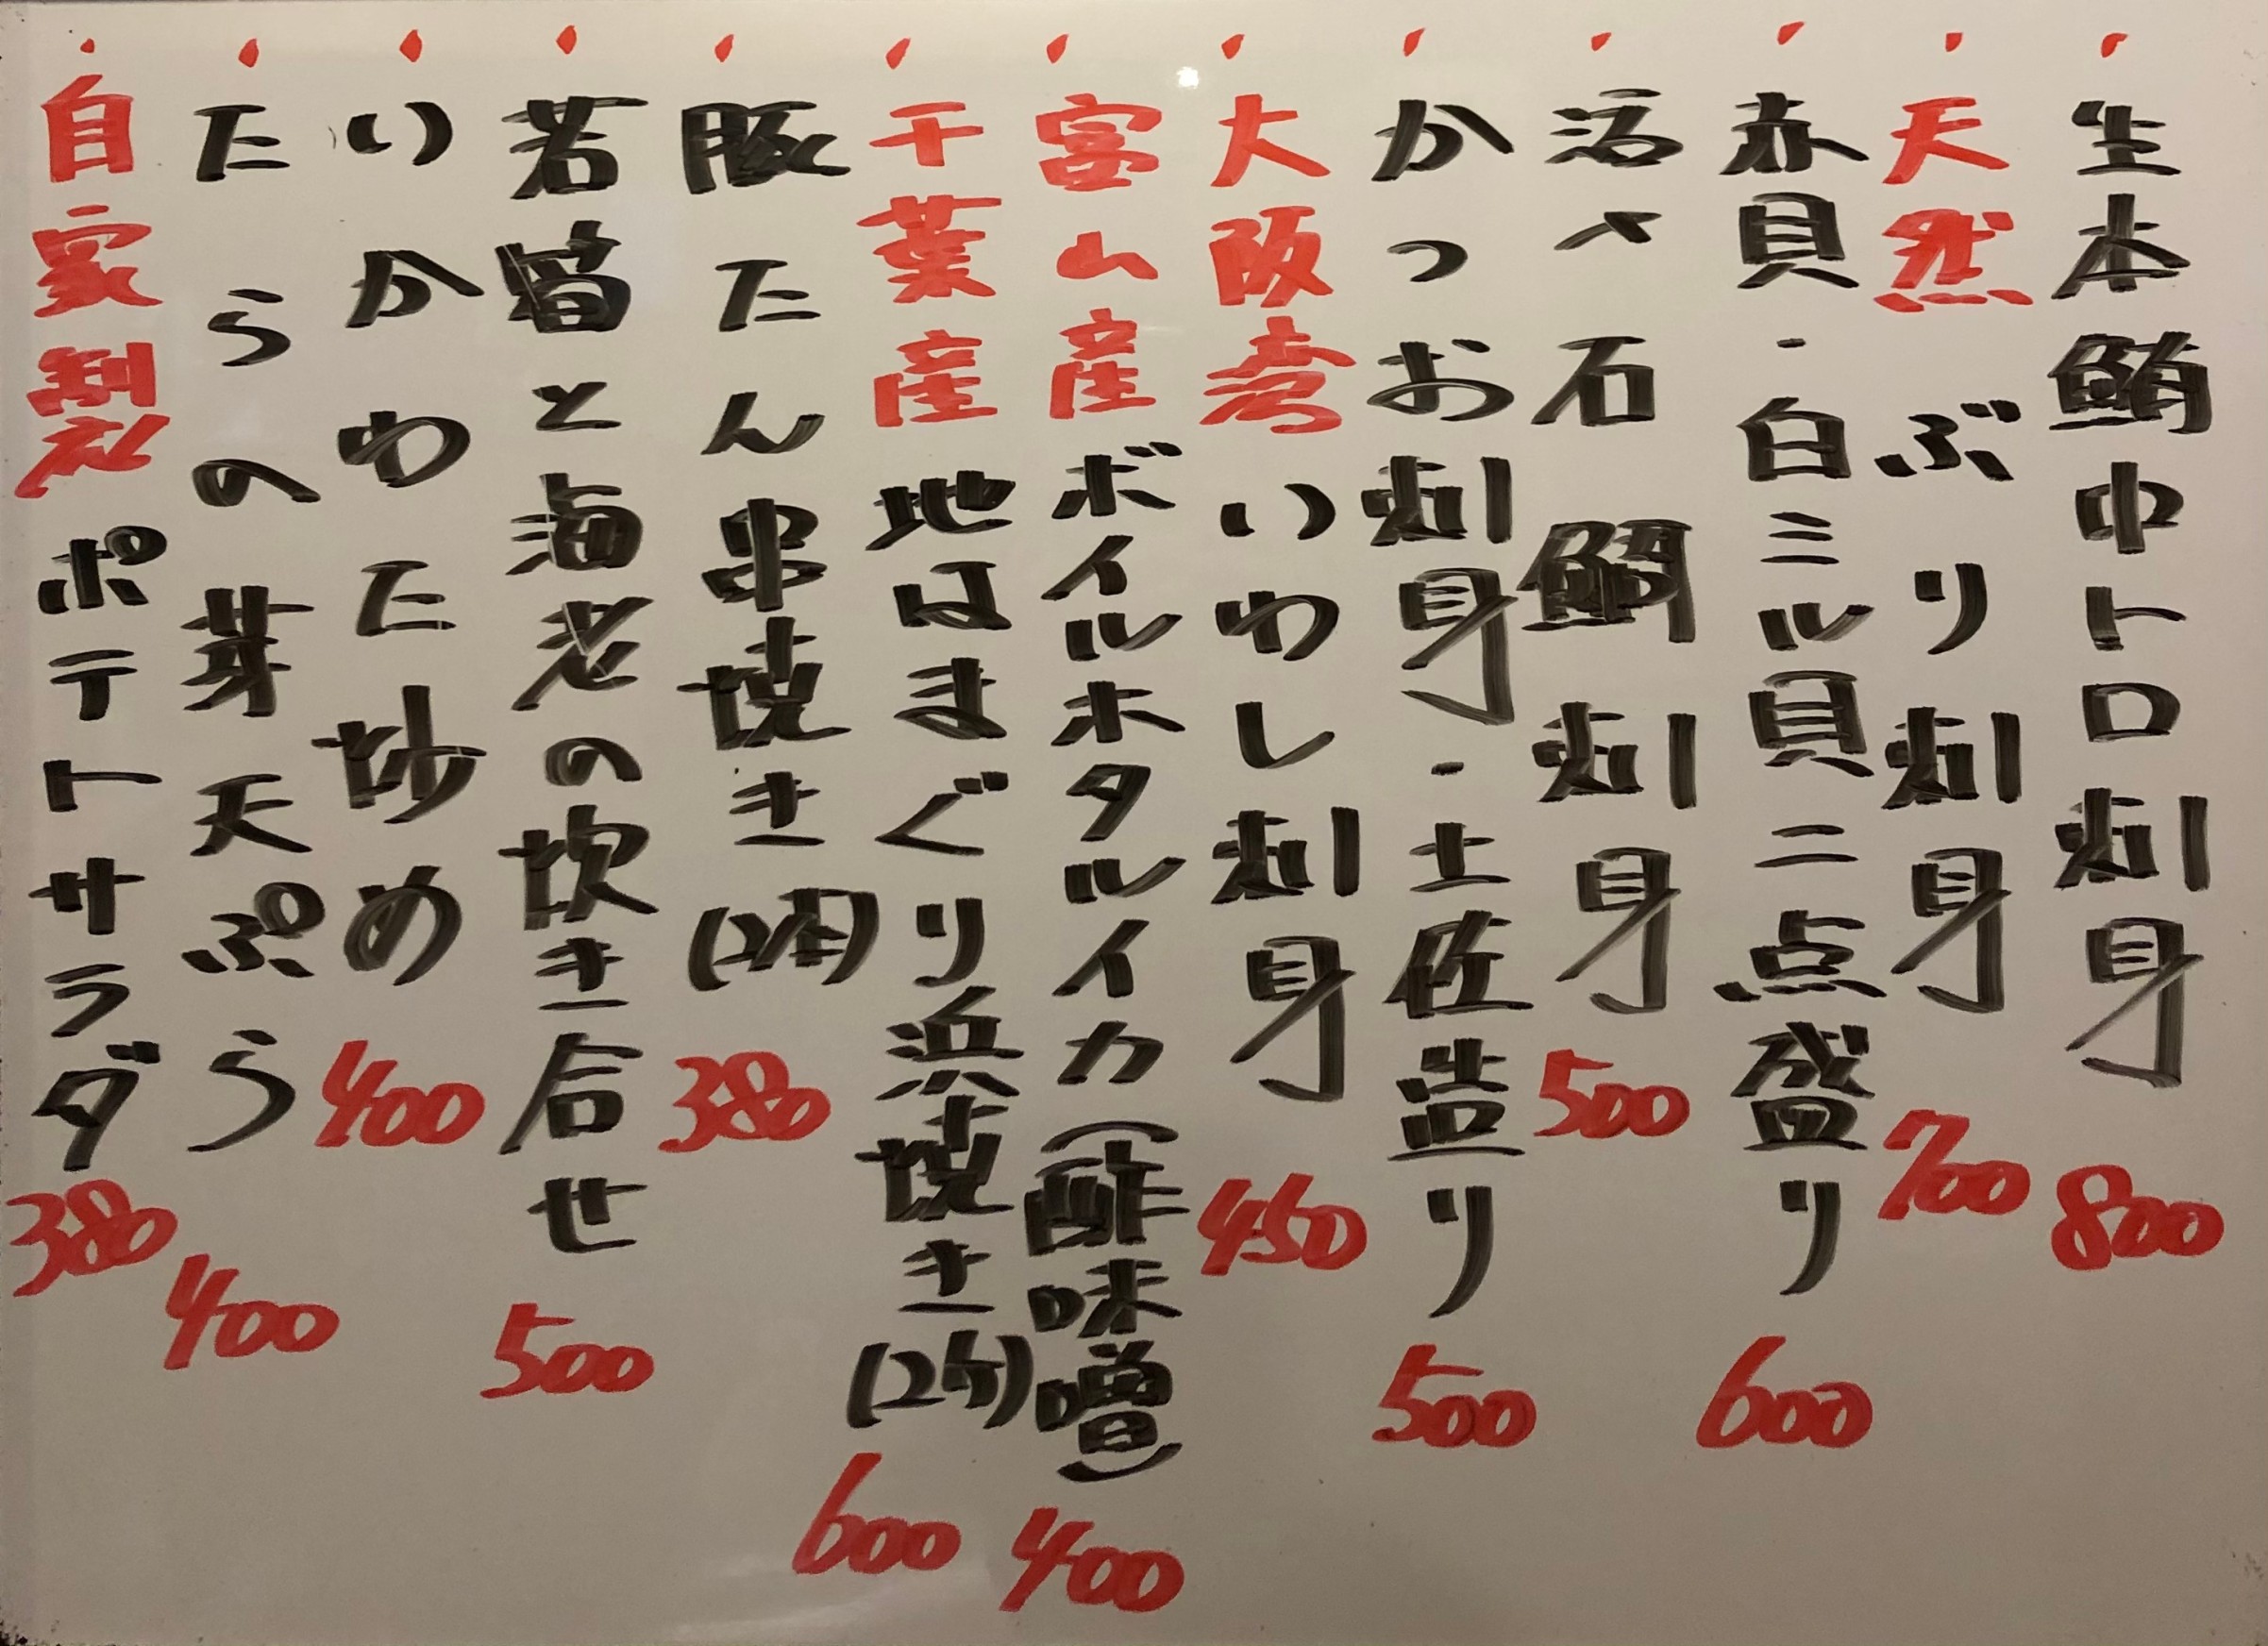 ・生本鮪中トロ刺身 800
・天然ぶり刺身 700
・赤貝・白ミル貝二点盛り 600
・活〆石鯛刺身 500
・かつお刺身・土佐造り 500
・大阪湾いわし刺身 450
・富山産ボイルホタルイカ(酢味噌) 400
・千葉産地はまぐり浜焼き(2ケ) 600
・豚たん串焼き(2本) 380
・若筍と海老の炊き合せ 500
・いかわた炒め 400
・たらの芽天ぷら 400
・自家製ポテトサラダ 380